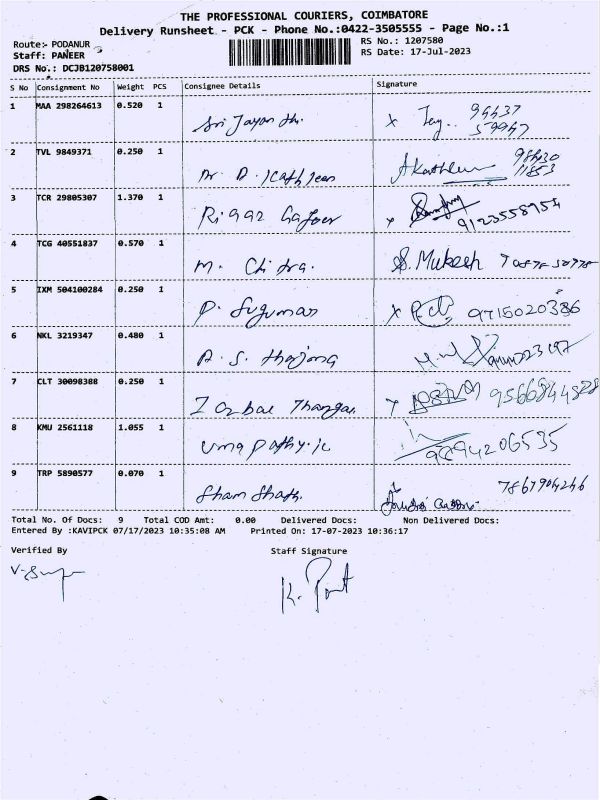 THE PROFESSIONAL COURIERS, COIMBATORE
Delivery Runsheet - PCK - Phone No.:0422-3505555 - Page No.:1
Route:- PODANUR
RS No.: 1207580
Staff: PANEER
RS Date: 17-Jul-2023
DRS No.: DCJB120758001
S No Consignment No Weight PCS Consignee Details Signature
1 MAA 298264613 0.520 1
Sri Jayanthi. x
2 TVL 9849371 0.250 1
Dr. D. Kathleen AKathleen
3 TCR 29805307 1.370 1
Riyaz Gafoor x 9123558954
4 TCG 40551837 0.570 1
M. Chitra. S. Mukesh
5 IXM 504100284 0.250 1
P. Sugumar x 9715020386
6 NKL 3219347 0.480 1
A. S.
7 CLT 30098388 0.250 1
9566844828
8 KMU 2561118 1.055 1
Umapathy.K 9894206535
9 TRP 5890577 0.070 1
7867904266
Total No. Of Docs: 9 Total COD Amt: 0.00 Delivered Docs: Non Delivered Docs:
Entered By :KAVIPCK 07/17/2023 10:35:08 AM Printed On: 17-07-2023 10:36:17
Verified By Staff Signature